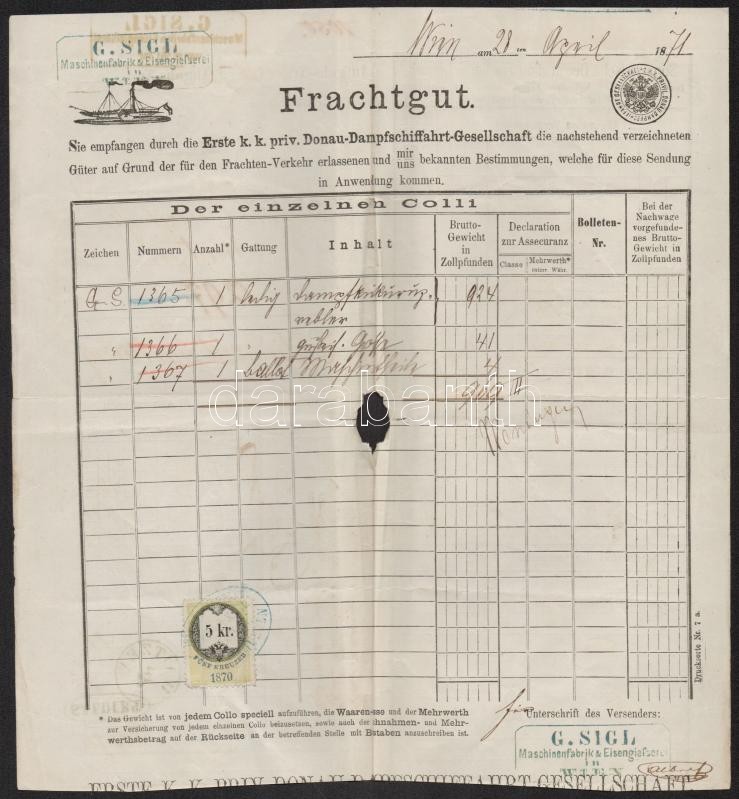 G. SIGL
Maschinenfabrik & Eisengießerei
in
WIEN
Wien am 28 ten April 1871
Frachtgut.
Sie empfangen durch die Erste k. k. priv. Donau-Dampfschiffahrt-Gesellschaft die nachstehend verzeichneten
Güter auf Grund der für den Frachten-Verkehr erlassenen und mir
uns bekannten Bestimmungen, welche für diese Sendung
in Anwendung kommen.
Der einzelnen Colli
Zeichen Nummern Anzahl* Gattung Inhalt Brutto-Gewicht in Zollpfunden Declaration zur Assecuranz Classe Mehrwerth* österr. Währ. Bolleten-Nr. Bei der Nachwage vorgefundenes Brutto-Gewicht in Zollpfunden
G. S. 1365 1 ledig 924
rebler
" 1366 1 41
" 1367 1 Maschintheile 4
969
darabanth
5 kr.
FÜNF KREUZER
1870
* Das Gewicht ist von jedem Collo speciell aufzuführen, die Waaren-sse und der Mehrwerth
zur Versicherung von jedem einzelnen Collo beizusetzen, sowie auch der hnahmen- und Mehr-
werthsbetrag auf der Rückseite an der betreffenden Stelle mit Bstaben anzuschreiben ist.
Druckseite Nr. 7 a.
für Unterschrift des Versenders:
G. SIGL
Maschinenfabrik & Eisengießerei
in
WIEN
ERSTE K. K. PRIV. DONAU-DAMPFSCHIFFAHRT-GESELLSCHAFT